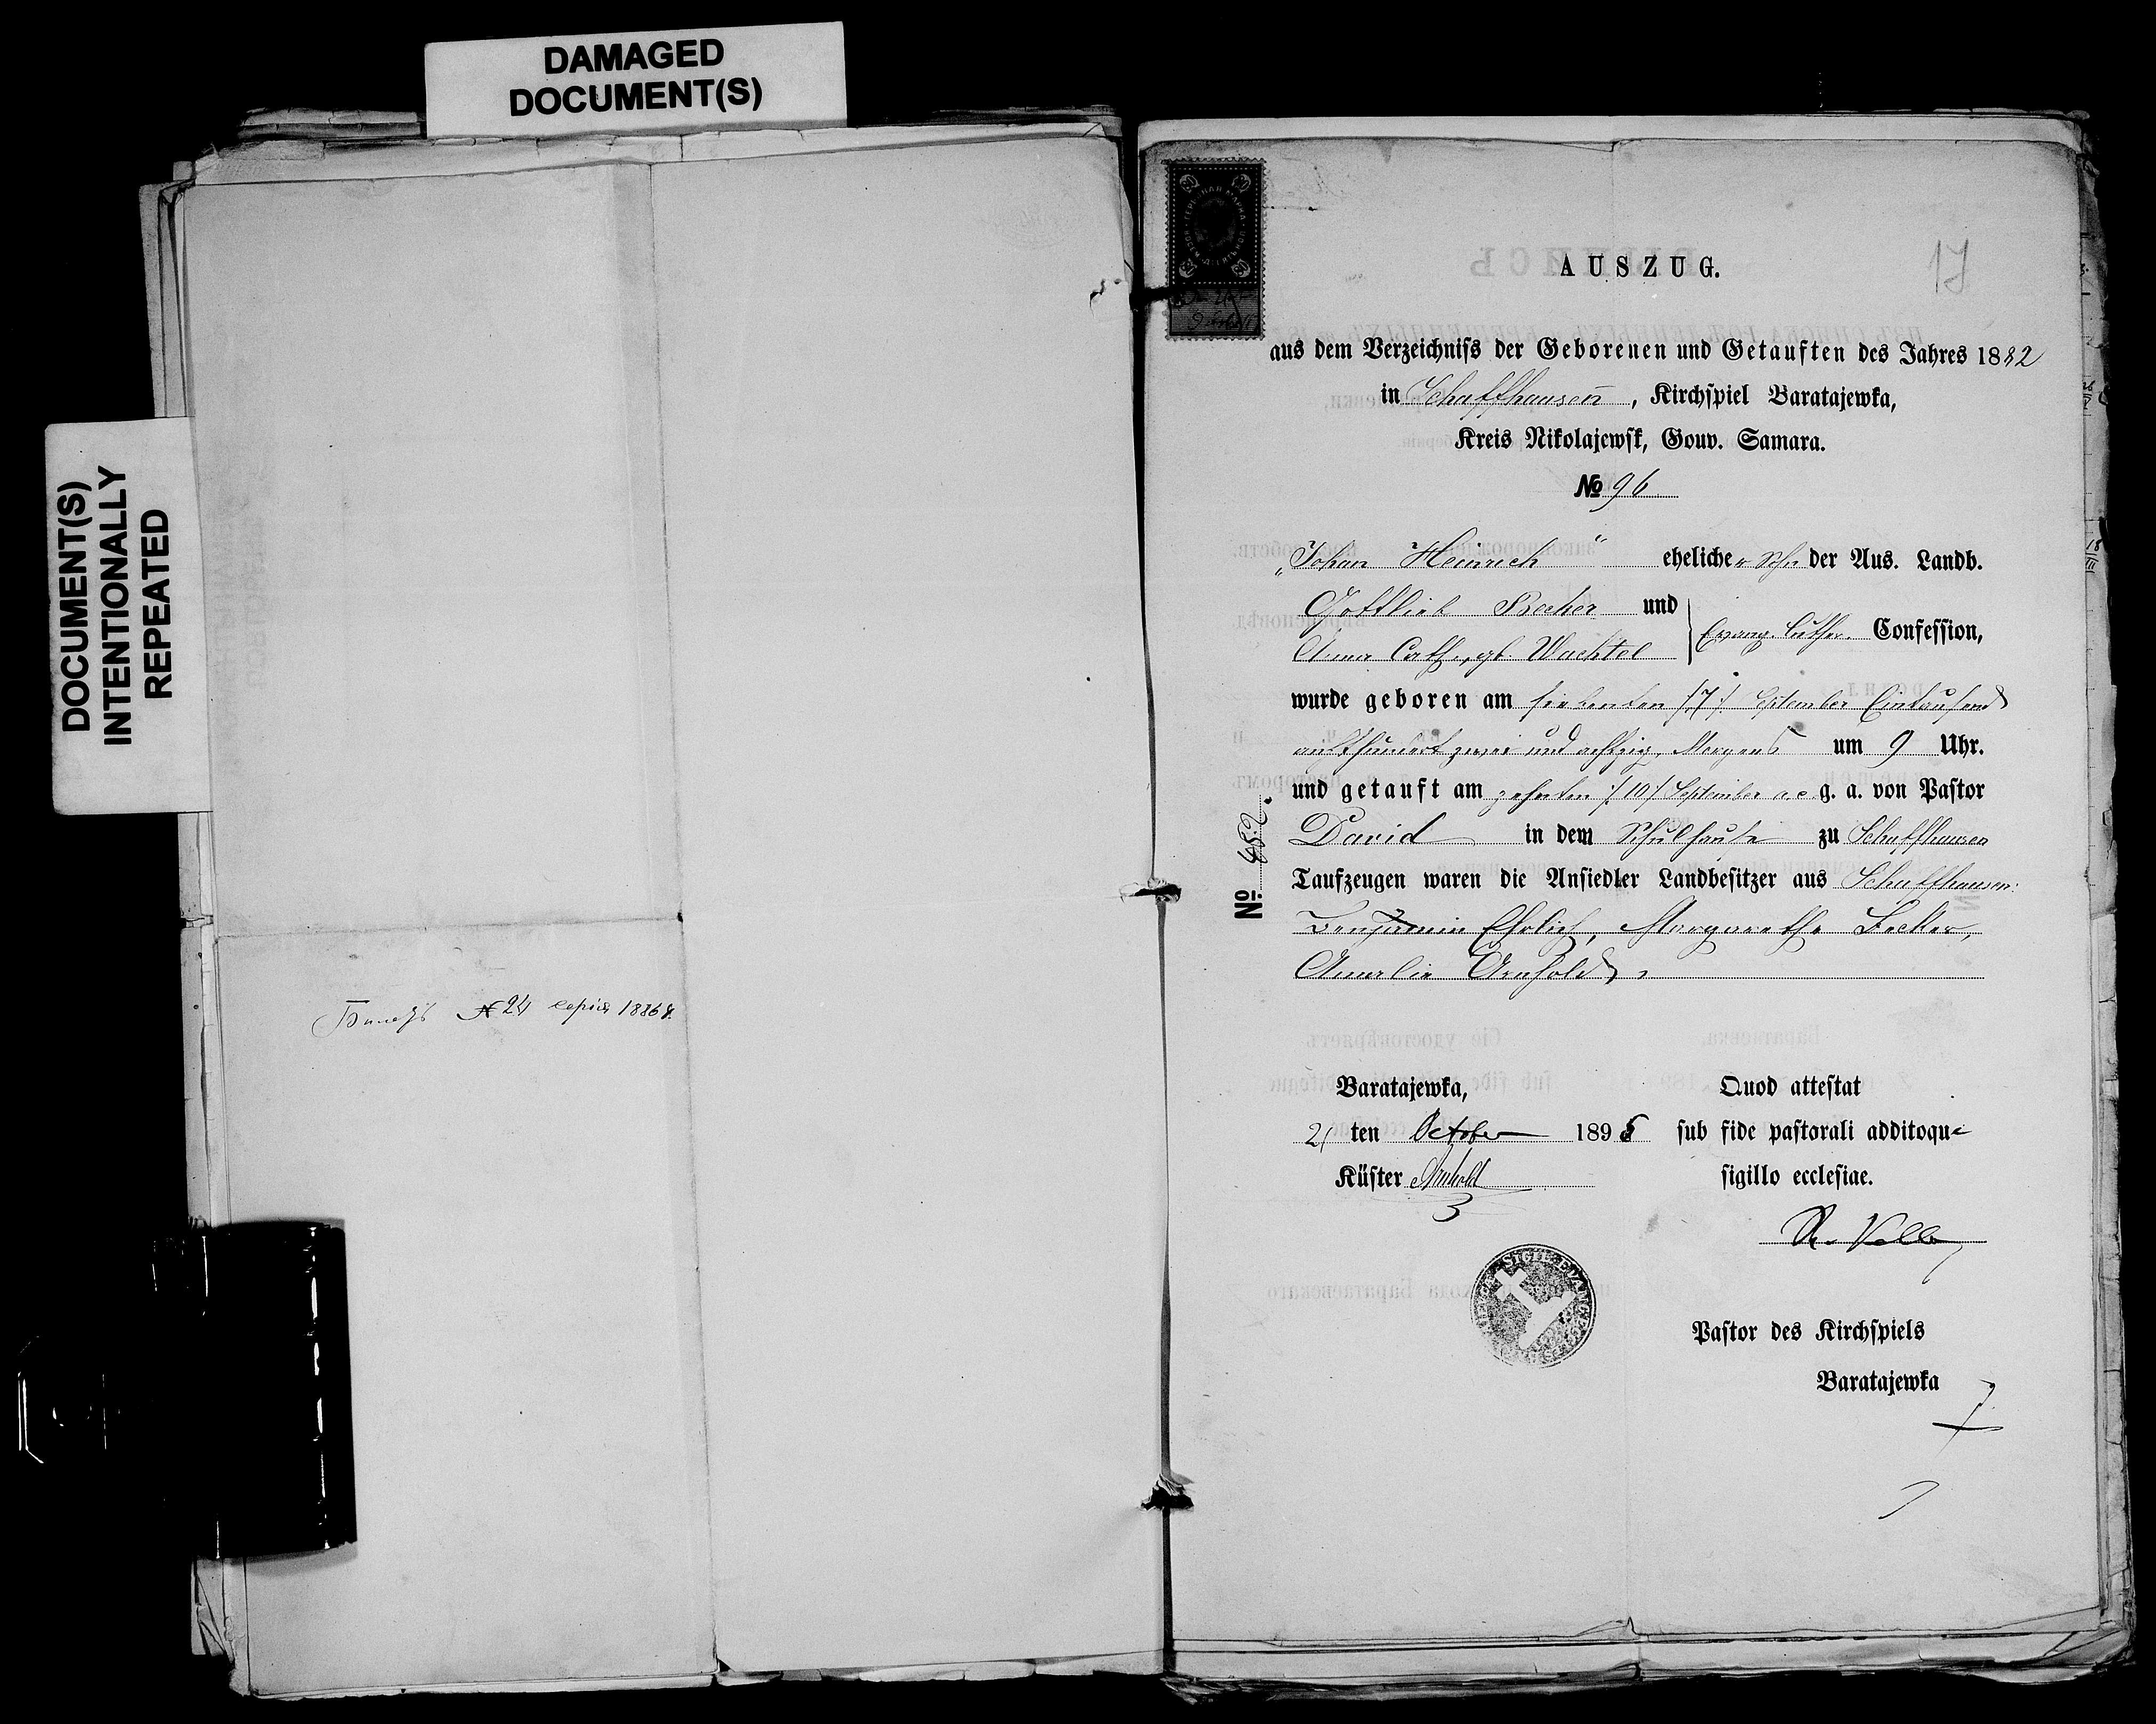 DAMAGED
DOCUMENT(S)
DOCUMENT(S)
INTENTIONALLY
REPEATED
Билетъ № 24 серія 1886 г.
17
AUSZUG.
aus dem Verzeichniss der Geborenen und Getauften des Jahres 1882
in Schaffhausen, Kirchspiel Baratajewka,
Kreis Nikolajewsk, Gouv. Samara.
№ 96
„Johan Heinrich“ eheliche r Sohn der Aus. Landb.
Gottlieb Becker und
Anna Cath. gb. Wachtel
Evang. Luther. Confession,
wurde geboren am siebenten /7/ September Eintausend
achthundert zwei und achtzig, Morgens um 9 Uhr.
und getauft am zehnten /10/ September a.c. g. a. von Pastor
David in dem Schulhause zu Schaffhausen
Taufzeugen waren die Ansiedler Landbesitzer aus Schaffhausen:
Benjamin Ehrlich, Margarethe Becker,
Amalie Arnhold
№ 682.
Baratajewka,
21 ten October 1895
Küster Arnhold
Quod attestat
sub fide pastorali additoque
sigillo ecclesiae.
Pastor des Kirchspiels
Baratajewka